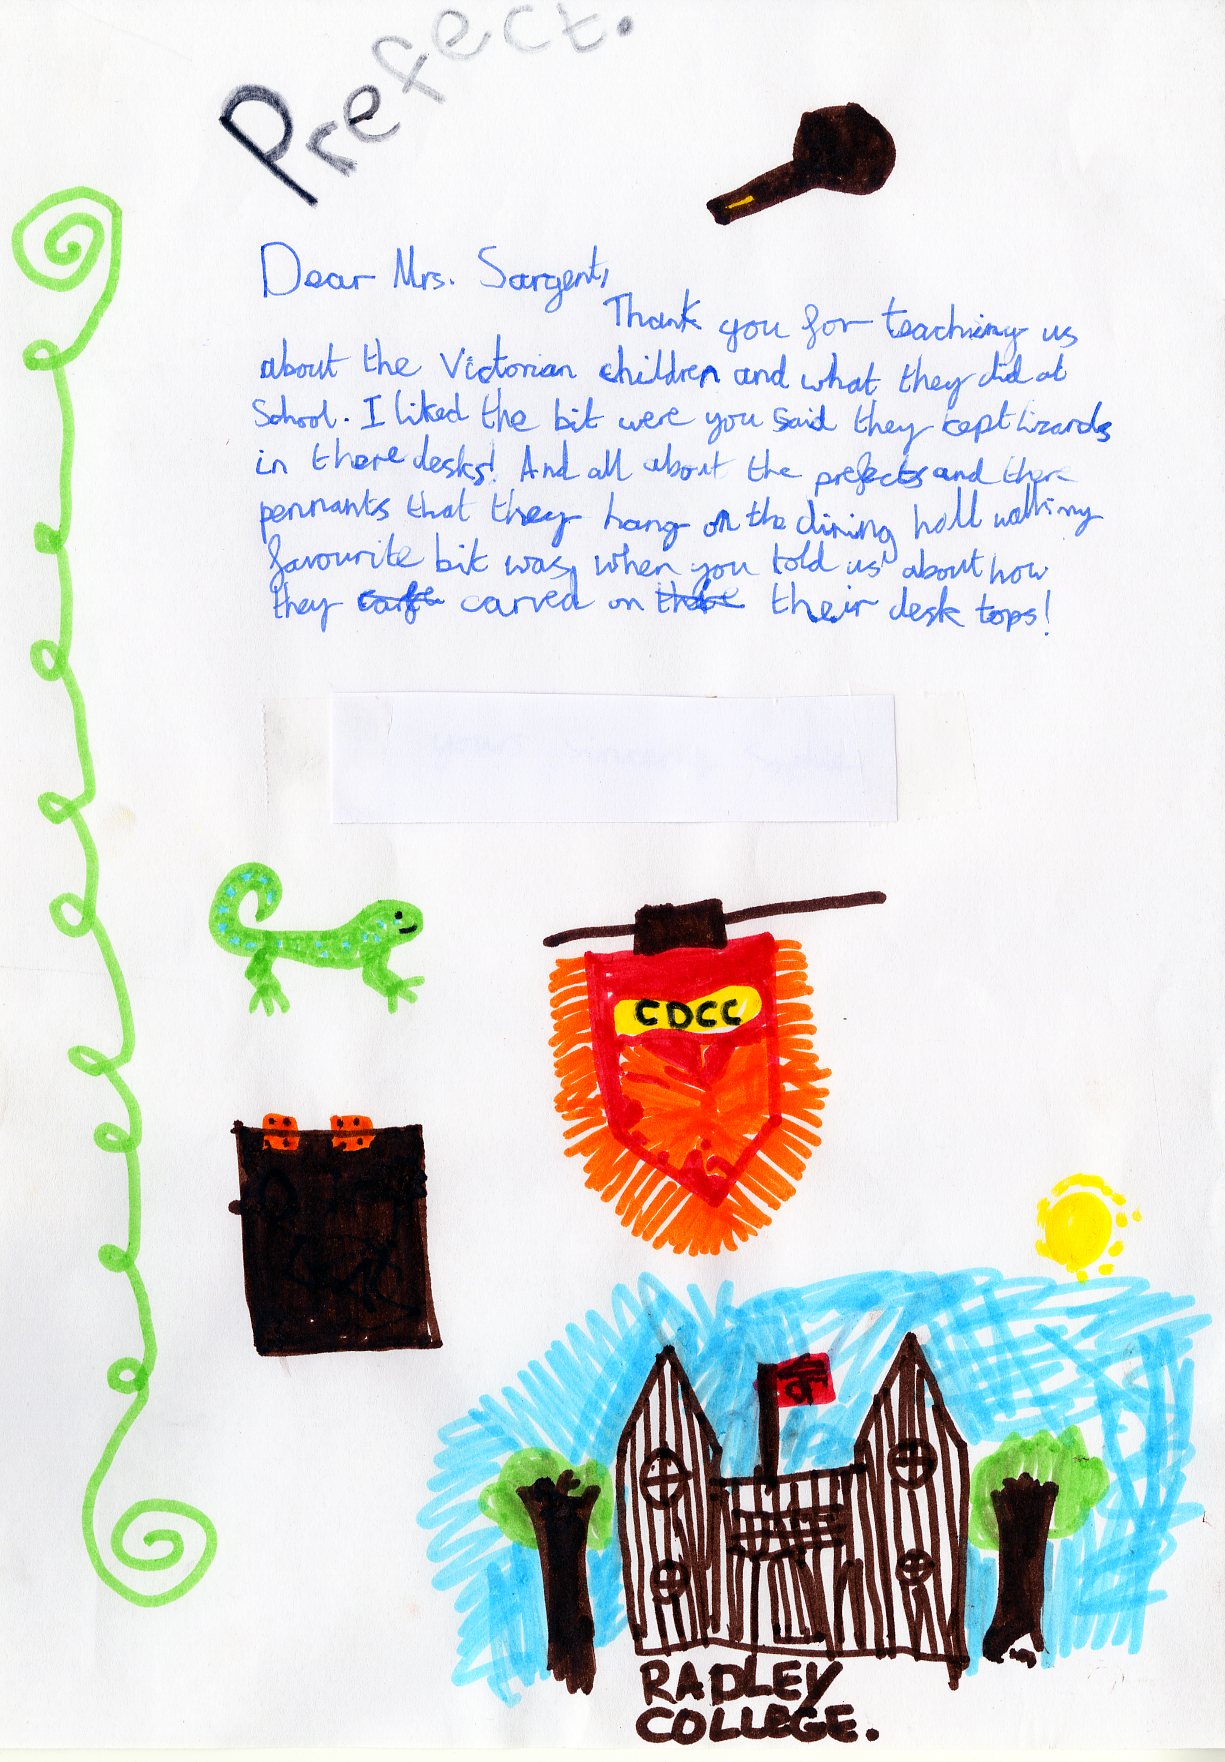 Prefect.
Dear Mrs. Sargent,
Thank you for teaching us
about the Victorian children and what they did at
School. I liked the bit were you said they kept lizards
in there desks! And all about the prefects and there
pennants that they hang on the dining hall wall! my
favourite bit was, when you told us about how
they carved on their desk tops!
your sincerly
CDCC
RADLEY
COLLEGE.